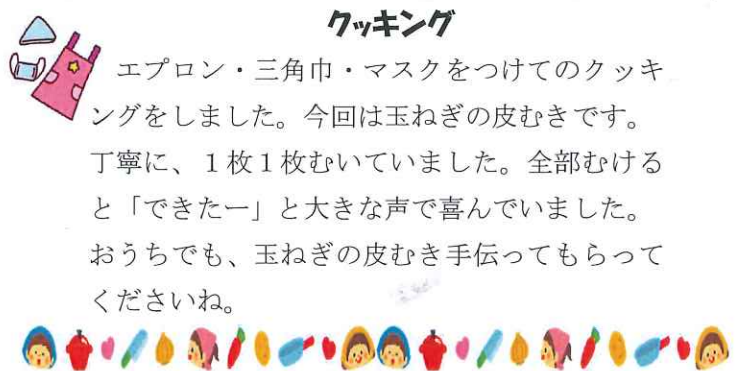 クッキング
エプロン・三角巾・マスクをつけてのクッキ
ングをしました。今回は玉ねぎの皮むきです。
丁寧に、１枚１枚むいていました。全部むける
と「できたー」と大きな声で喜んでいました。
おうちでも、玉ねぎの皮むき手伝ってもらって
くださいね。